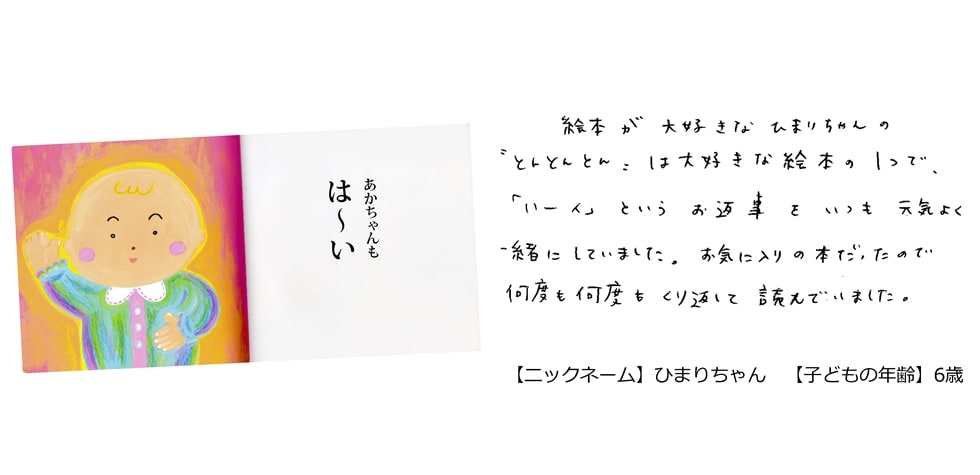 あかちゃんも
は〜い
絵本が大好きなひまりちゃんの
〝とんとんとん〟は大好きな絵本の1つで、
「いーん」というお返事をいつも元気よく
一緒にしていました。お気に入りの本だったので
何度も何度もくり返して読んでいました。
【ニックネーム】ひまりちゃん 【子どもの年齢】6歳